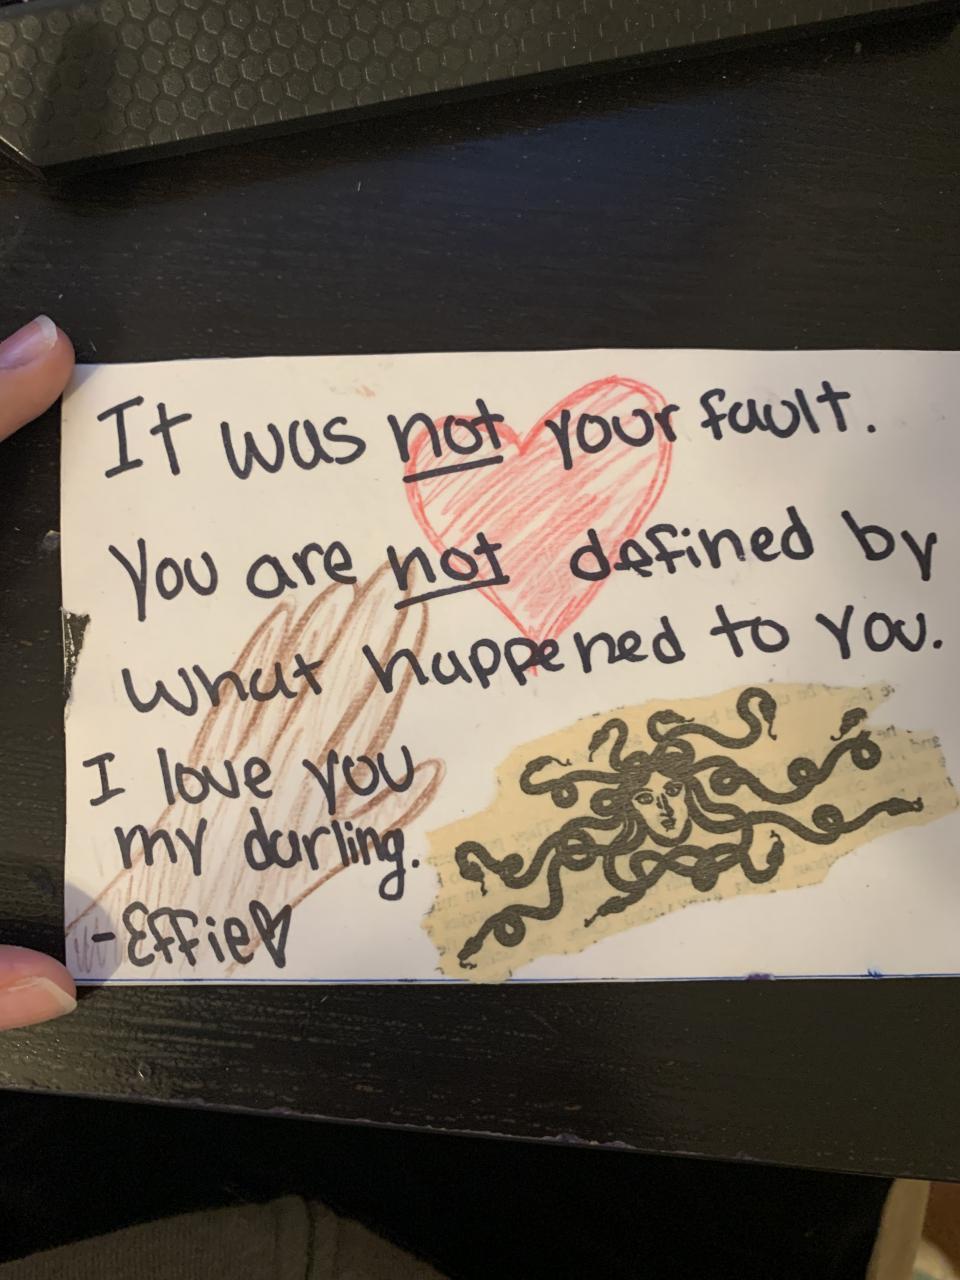 It was not your fault.
You are not defined by
what happened to you.
I love you
my darling.
-Effie